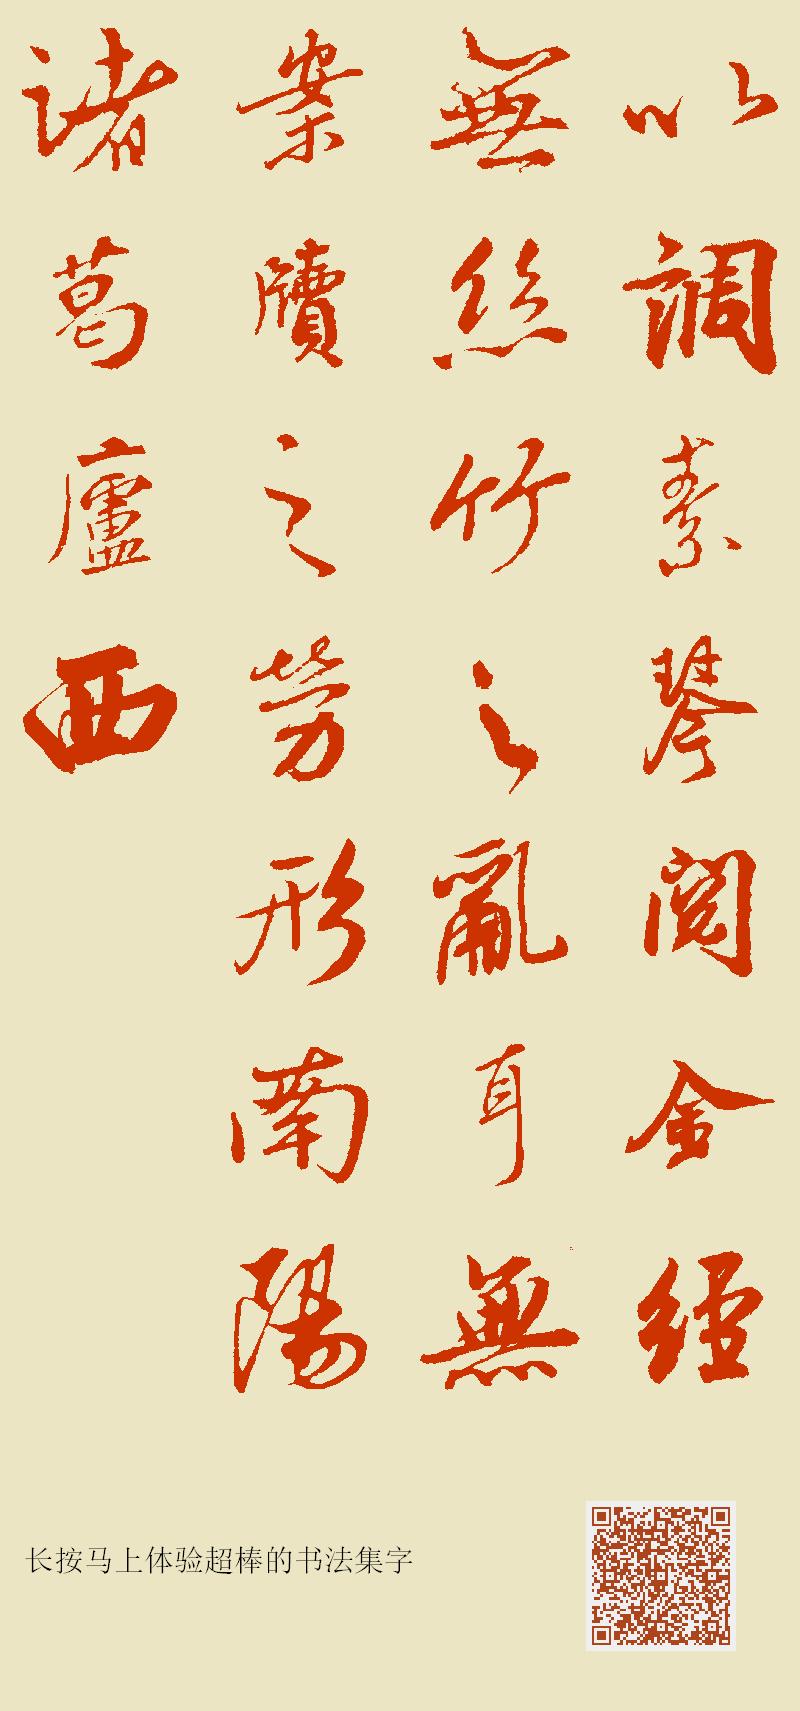 以調素琴閱金經
無絲竹之亂耳無
案牘之勞形南陽
諸葛廬西
长按马上体验超棒的书法集字